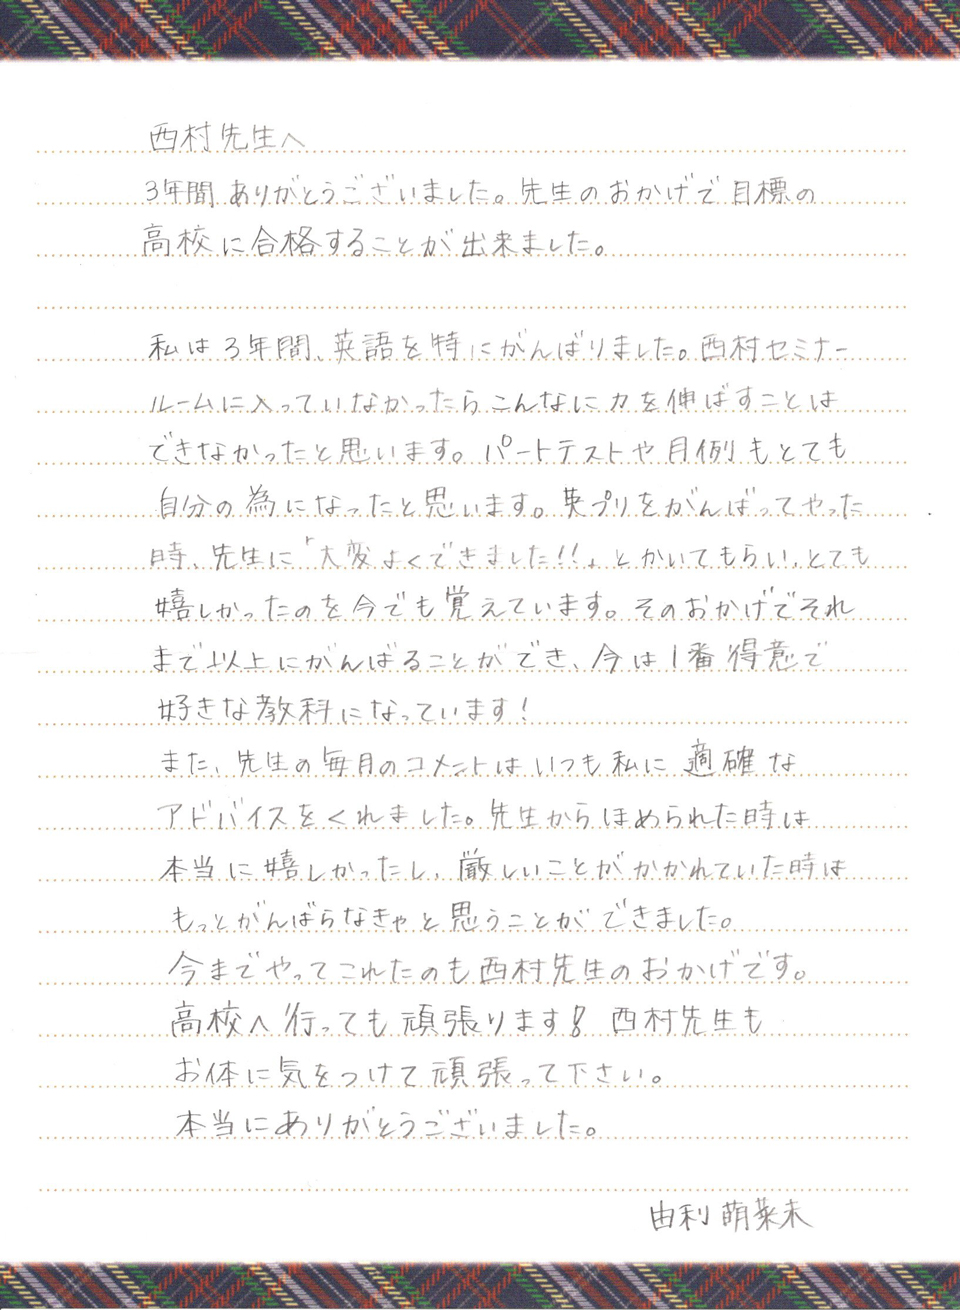 西村先生へ
3年間ありがとうございました。先生のおかげで目標の
高校に合格することが出来ました。
私は3年間、英語を特にがんばりました。西村セミナー
ルームに入っていなかったらこんなに力を伸ばすことは
できなかったと思います。パートテストや月例もとても
自分の為になったと思います。英プリをがんばってやった
時、先生に「大変よくできました!!」とかいてもらい、とても
嬉しかったのを今でも覚えています。そのおかげでそれ
まで以上にがんばることができ、今は1番得意で
好きな教科になっています!
また、先生の毎月のコメントはいつも私に適確な
アドバイスをくれました。先生からほめられた時は
本当に嬉しかったし、厳しいことがかかれていた時は
もっとがんばらなきゃと思うことができました。
今までやってこれたのも西村先生のおかげです。
高校へ行っても頑張ります! 西村先生も
お体に気をつけて頑張って下さい。
本当にありがとうございました。
由利 萌菜未